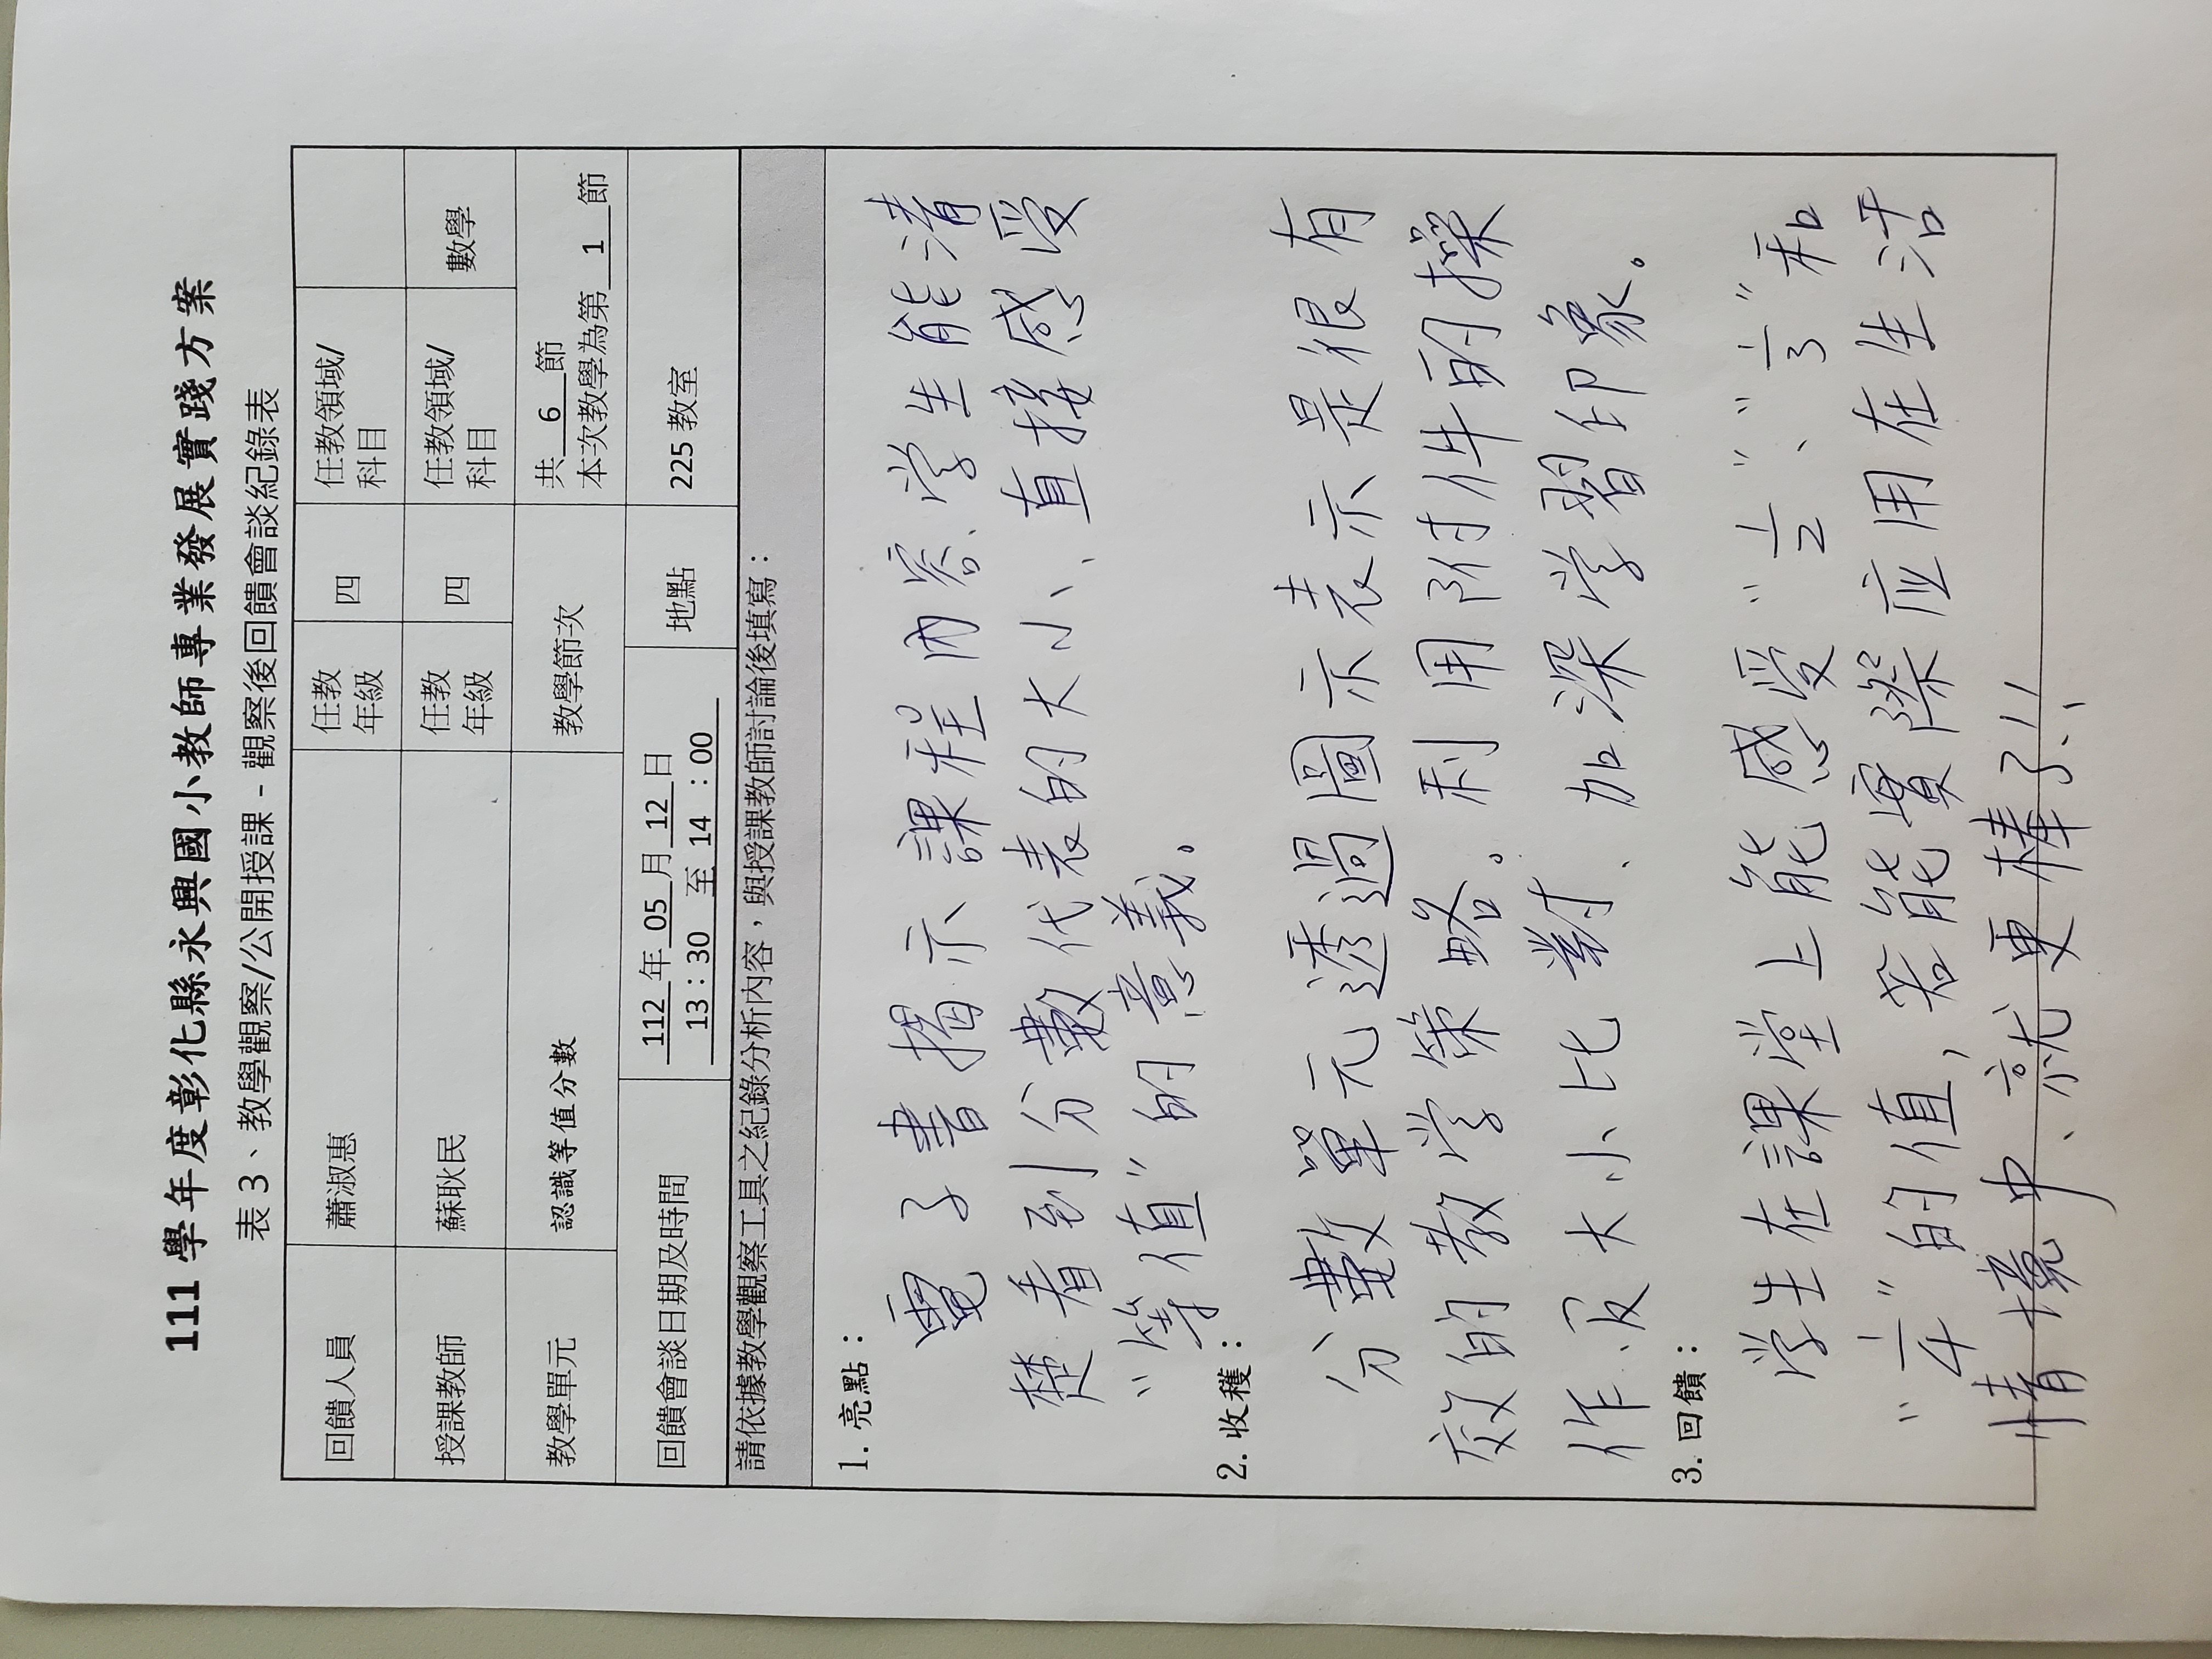 111 學年度彰化縣永興國小教師專業發展實踐方案
表 3、教學觀察/公開授課 - 觀察後回饋會談紀錄表
回饋人員 蕭淑惠 任教年級 四 任教領域/科目
授課教師 蘇耿民 任教年級 四 任教領域/科目 數學
教學單元 認識等值分數 教學節次 共 6 節
本次教學為第 1 節
回饋會談日期及時間 112 年 05 月 12 日 地點 225 教室
13：30 至 14：00
請依據教學觀察工具之紀錄分析內容，與授課教師討論後填寫：
1. 亮點：
電子書揭示課程內容、学生能清
楚看到分數代表的大小、直接感受
"等值"的意義。
2. 收穫：
分數單元透過圖示表示是很有
效的教学策略。利用附件的操
作.及大小比對、加深学習印象。
3. 回饋：
学生在課堂上能感受"1/2"、"1/3"和
"1/4"的值，若能實際应用在生活
情境中、就更棒了!!